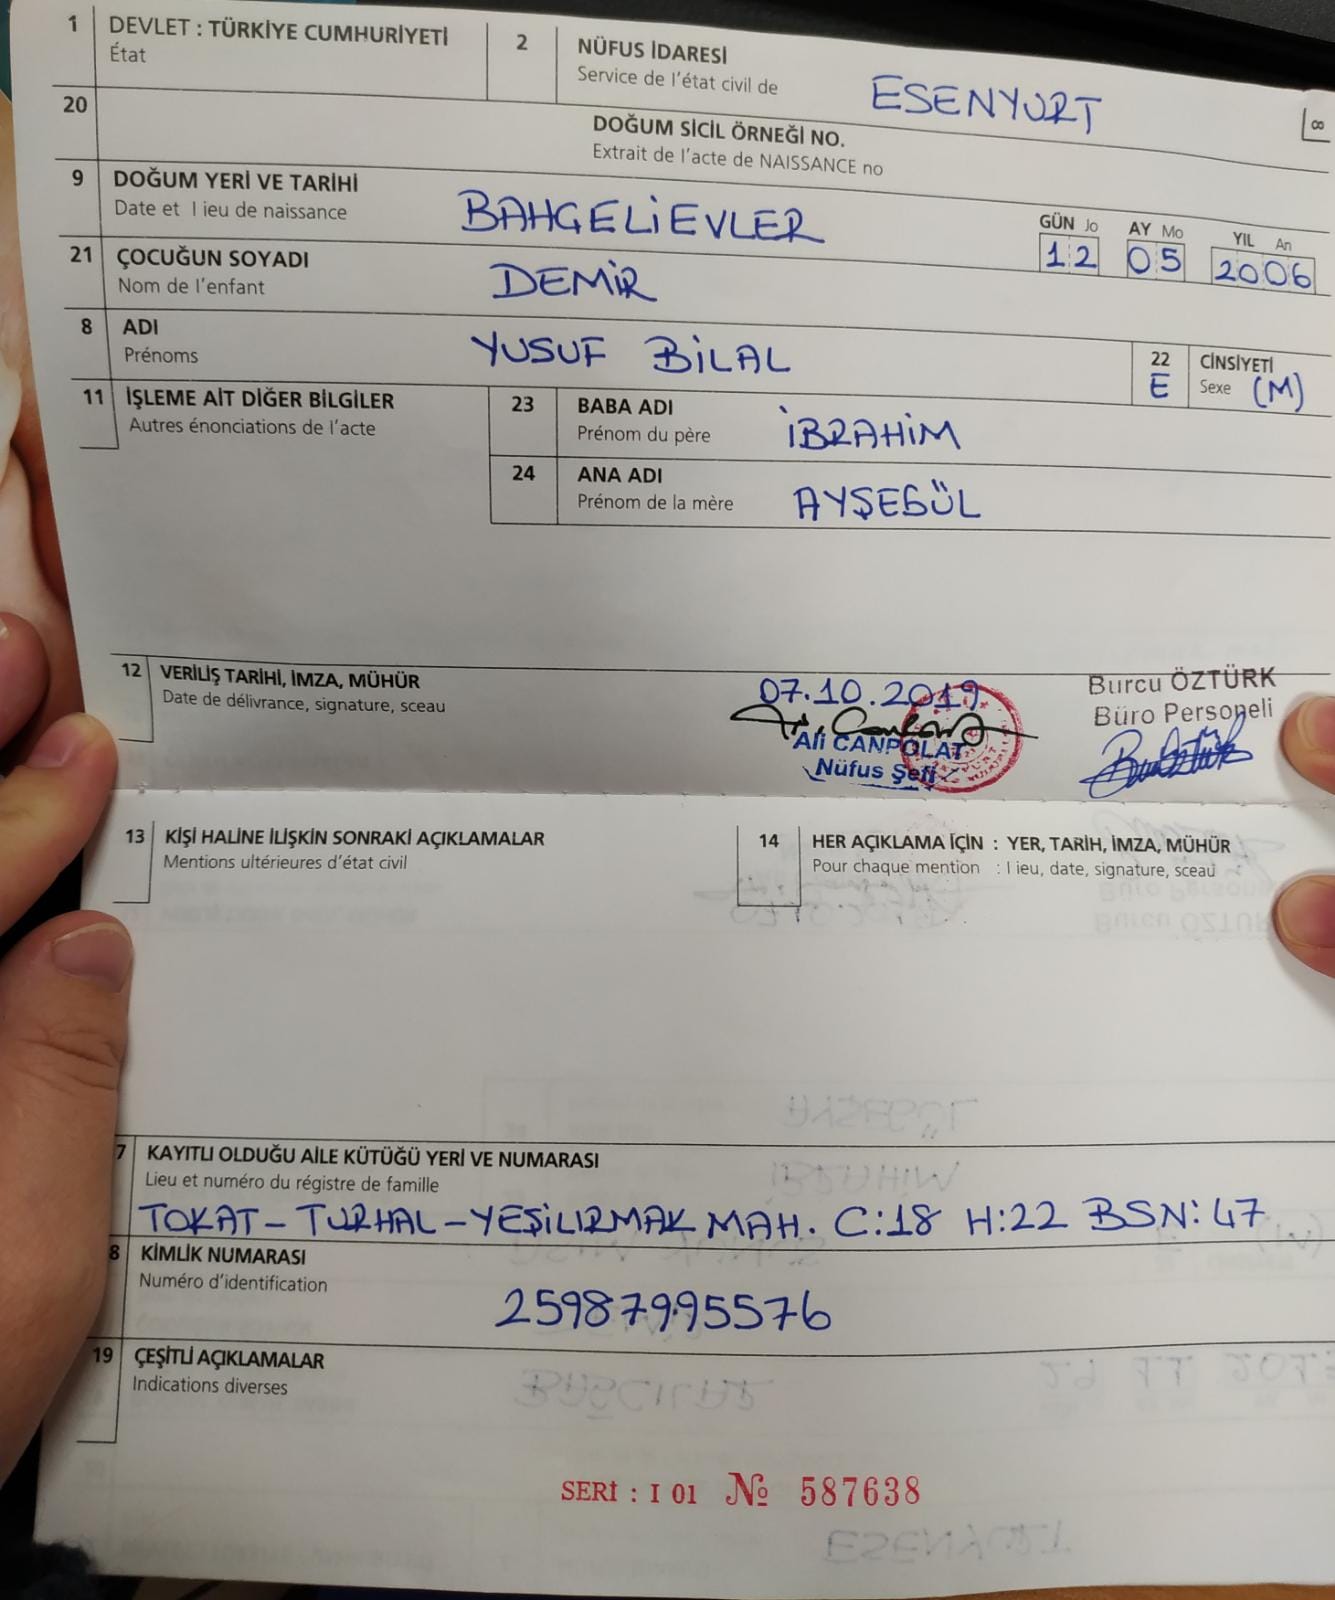 1 DEVLET : TÜRKİYE CUMHURİYETİ
État
2 NÜFUS İDARESİ
Service de l'état civil de
ESENYURT
8
20 DOĞUM SİCİL ÖRNEĞİ NO.
Extrait de l'acte de NAISSANCE no
9 DOĞUM YERİ VE TARİHİ
Date et l ieu de naissance
BAHGELİEVLER
GÜN Jo AY Mo YIL An
12 05 2006
21 ÇOCUĞUN SOYADI
Nom de l'enfant
DEMİR
8 ADI
Prénoms
YUSUF BİLAL
22 CİNSİYETİ
E Sexe (M)
11 İŞLEME AİT DİĞER BİLGİLER
Autres énonciations de l'acte
23 BABA ADI
Prénom du père
İBRAHİM
24 ANA ADI
Prénom de la mère
AYŞEGÜL
12 VERİLİŞ TARİHİ, İMZA, MÜHÜR
Date de délivrance, signature, sceau
07.10.2019
Ali CANPOLAT
Nüfus Şefi
Burcu ÖZTÜRK
Büro Personeli
13 KİŞİ HALİNE İLİŞKİN SONRAKİ AÇIKLAMALAR
Mentions ultérieures d'état civil
14 HER AÇIKLAMA İÇİN : YER, TARİH, İMZA, MÜHÜR
Pour chaque mention : l ieu, date, signature, sceau
7 KAYITLI OLDUĞU AİLE KÜTÜĞÜ YERİ VE NUMARASI
Lieu et numéro du régistre de famille
TOKAT - TURHAL - YEŞİLIRMAK MAH. C:18 H:22 BSN:47
8 KİMLİK NUMARASI
Numéro d'identification
25987995576
19 ÇEŞİTLİ AÇIKLAMALAR
Indications diverses
SERİ : I 01 № 587638